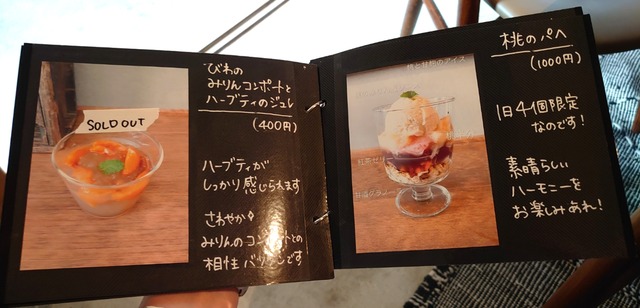 SOLD OUT
びわの
みりんコンポートと
ハーブティのジュレ
(400円)
ハーブティが
しっかり感じられます
さわやか◇
みりんのコンポートとの
相性バツグンです
桃のパヘ
(1000円)
1日4個限定
なのです!
素晴らしい
ハーモニーを
お楽しみあれ!
紅茶ゼリー